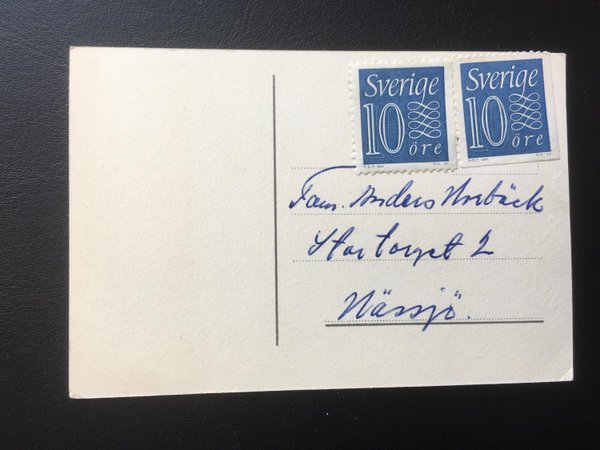 Sverige
10
öre
Sverige
10
öre
Fam. Anders Horbäck
Stortorget 2
Nässjö.